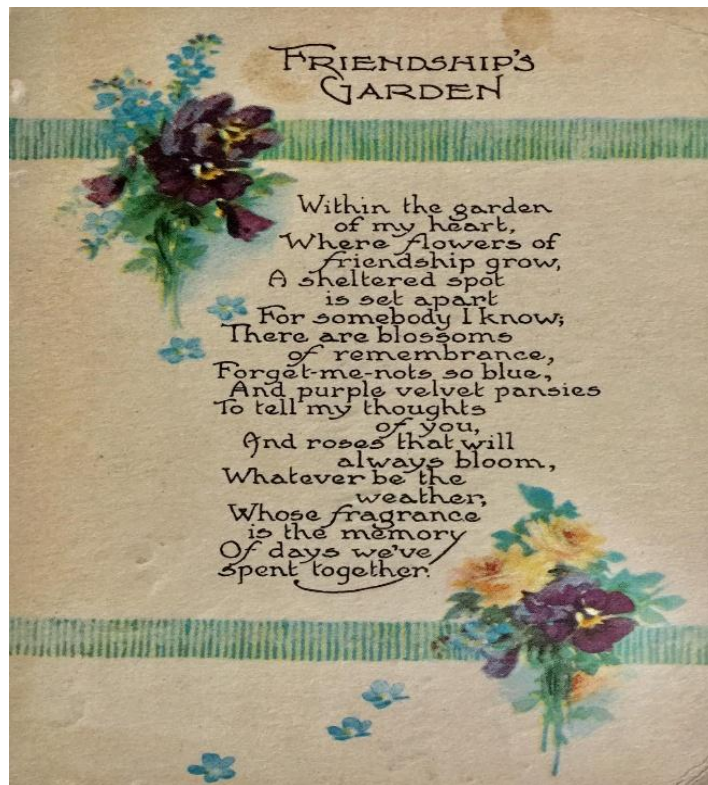 FRIENDSHIP'S
GARDEN
Within the garden
of my heart,
Where flowers of
friendship grow,
A sheltered spot
is set apart
For somebody I know;
There are blossoms
of remembrance,
Forget-me-nots so blue,
And purple velvet pansies
To tell my thoughts
of you,
And roses that will
always bloom,
Whatever be the
weather,
Whose fragrance
is the memory
Of days we've
spent together.